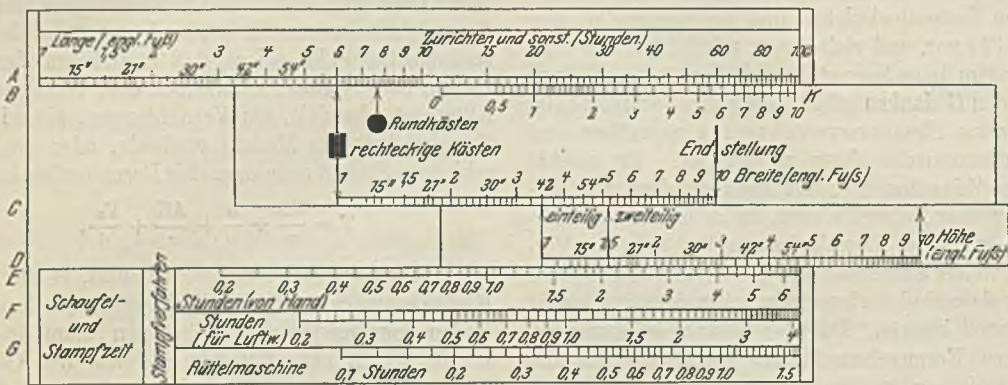 Länge (engl. Fuß) Zurichten und sonst. (Stunden)
1 1,5 2 3 4 5 6 7 8 9 10 15 20 30 40 60 80 100
15" 21" 30" 42" 54"
A
B
0 0,5 1 2 3 4 5 6 7 8 9 10 K
Rundkästen
rechteckige Kästen
End stellung
1 1,5 2 3 4 5 6 7 8 9 10 Breite (engl. Fuß)
15" 27" 30" 42 54"
C
einteilig zweiteilig
1 1,5 2 3 4 5 6 7 8 9 10 Höhe (engl. Fuß)
15" 21" 30" 42" 54"
D
E
0,2 0,3 0,4 0,5 0,6 0,7 0,8 0,9 1,0 1,5 2 3 4 5 6
Schaufel- und Stampfzeit
Stampfverfahren
Stunden (von Hand)
F
Stunden (für Luftw.) 0,2 0,3 0,4 0,5 0,6 0,7 0,8 0,9 1,0 1,5 2 3 4
G
Rüttelmaschine 0,1 Stunden 0,2 0,3 0,4 0,5 0,6 0,7 0,8 0,9 1,0 1.5